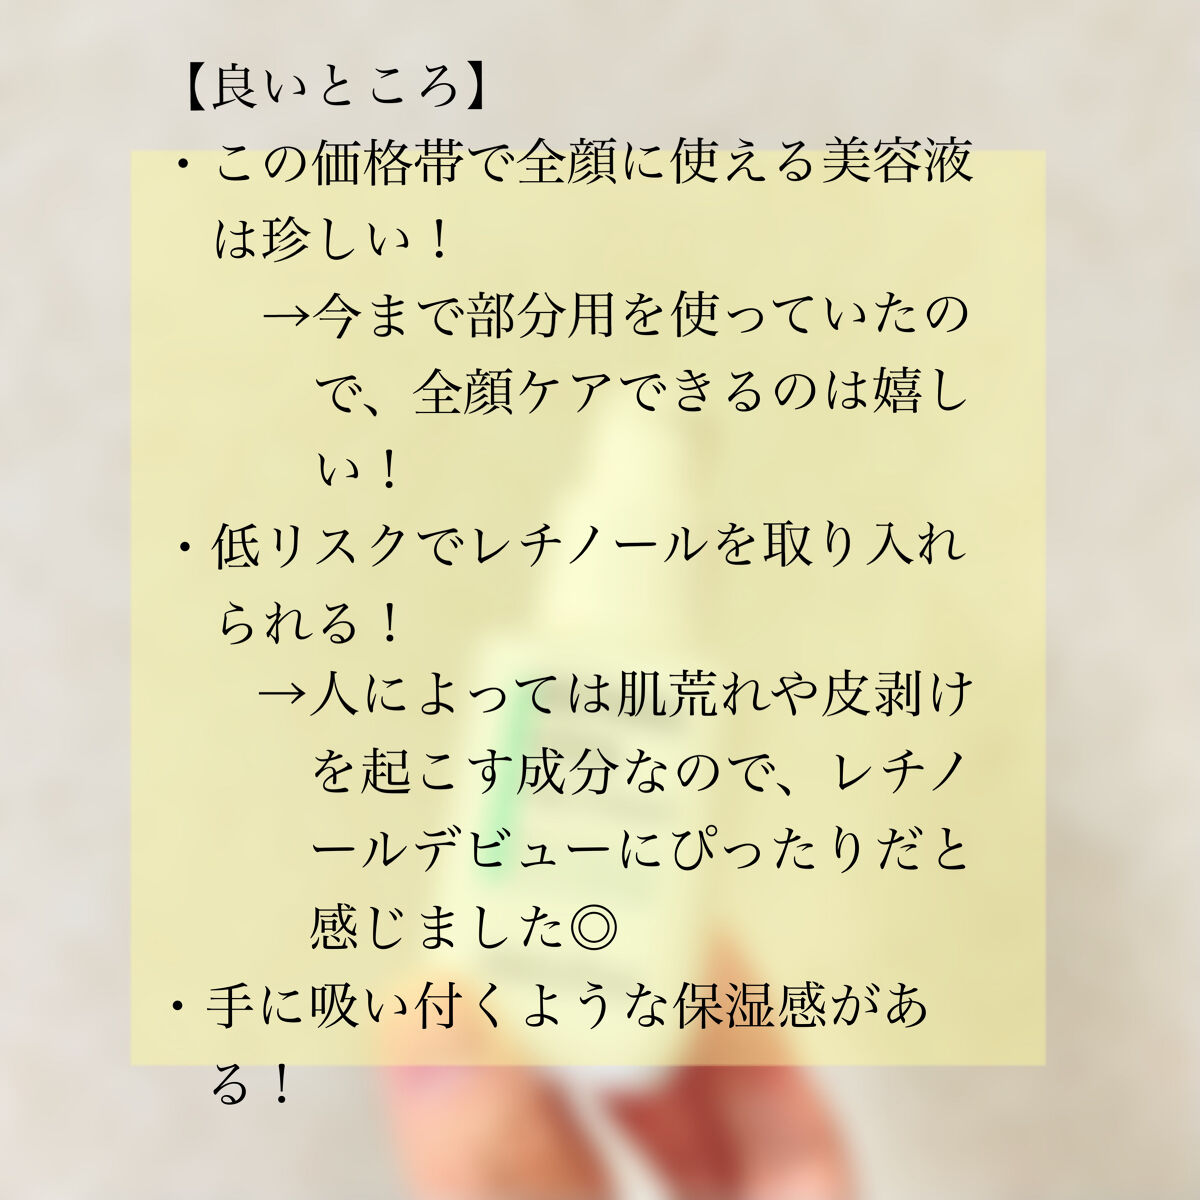 【良いところ】
・この価格帯で全顔に使える美容液
は珍しい！
→今まで部分用を使っていたの
で、全顔ケアできるのは嬉し
い！
・低リスクでレチノールを取り入れ
られる！
→人によっては肌荒れや皮剥け
を起こす成分なので、レチノ
ールデビューにぴったりだと
感じました◎
・手に吸い付くような保湿感があ
る！